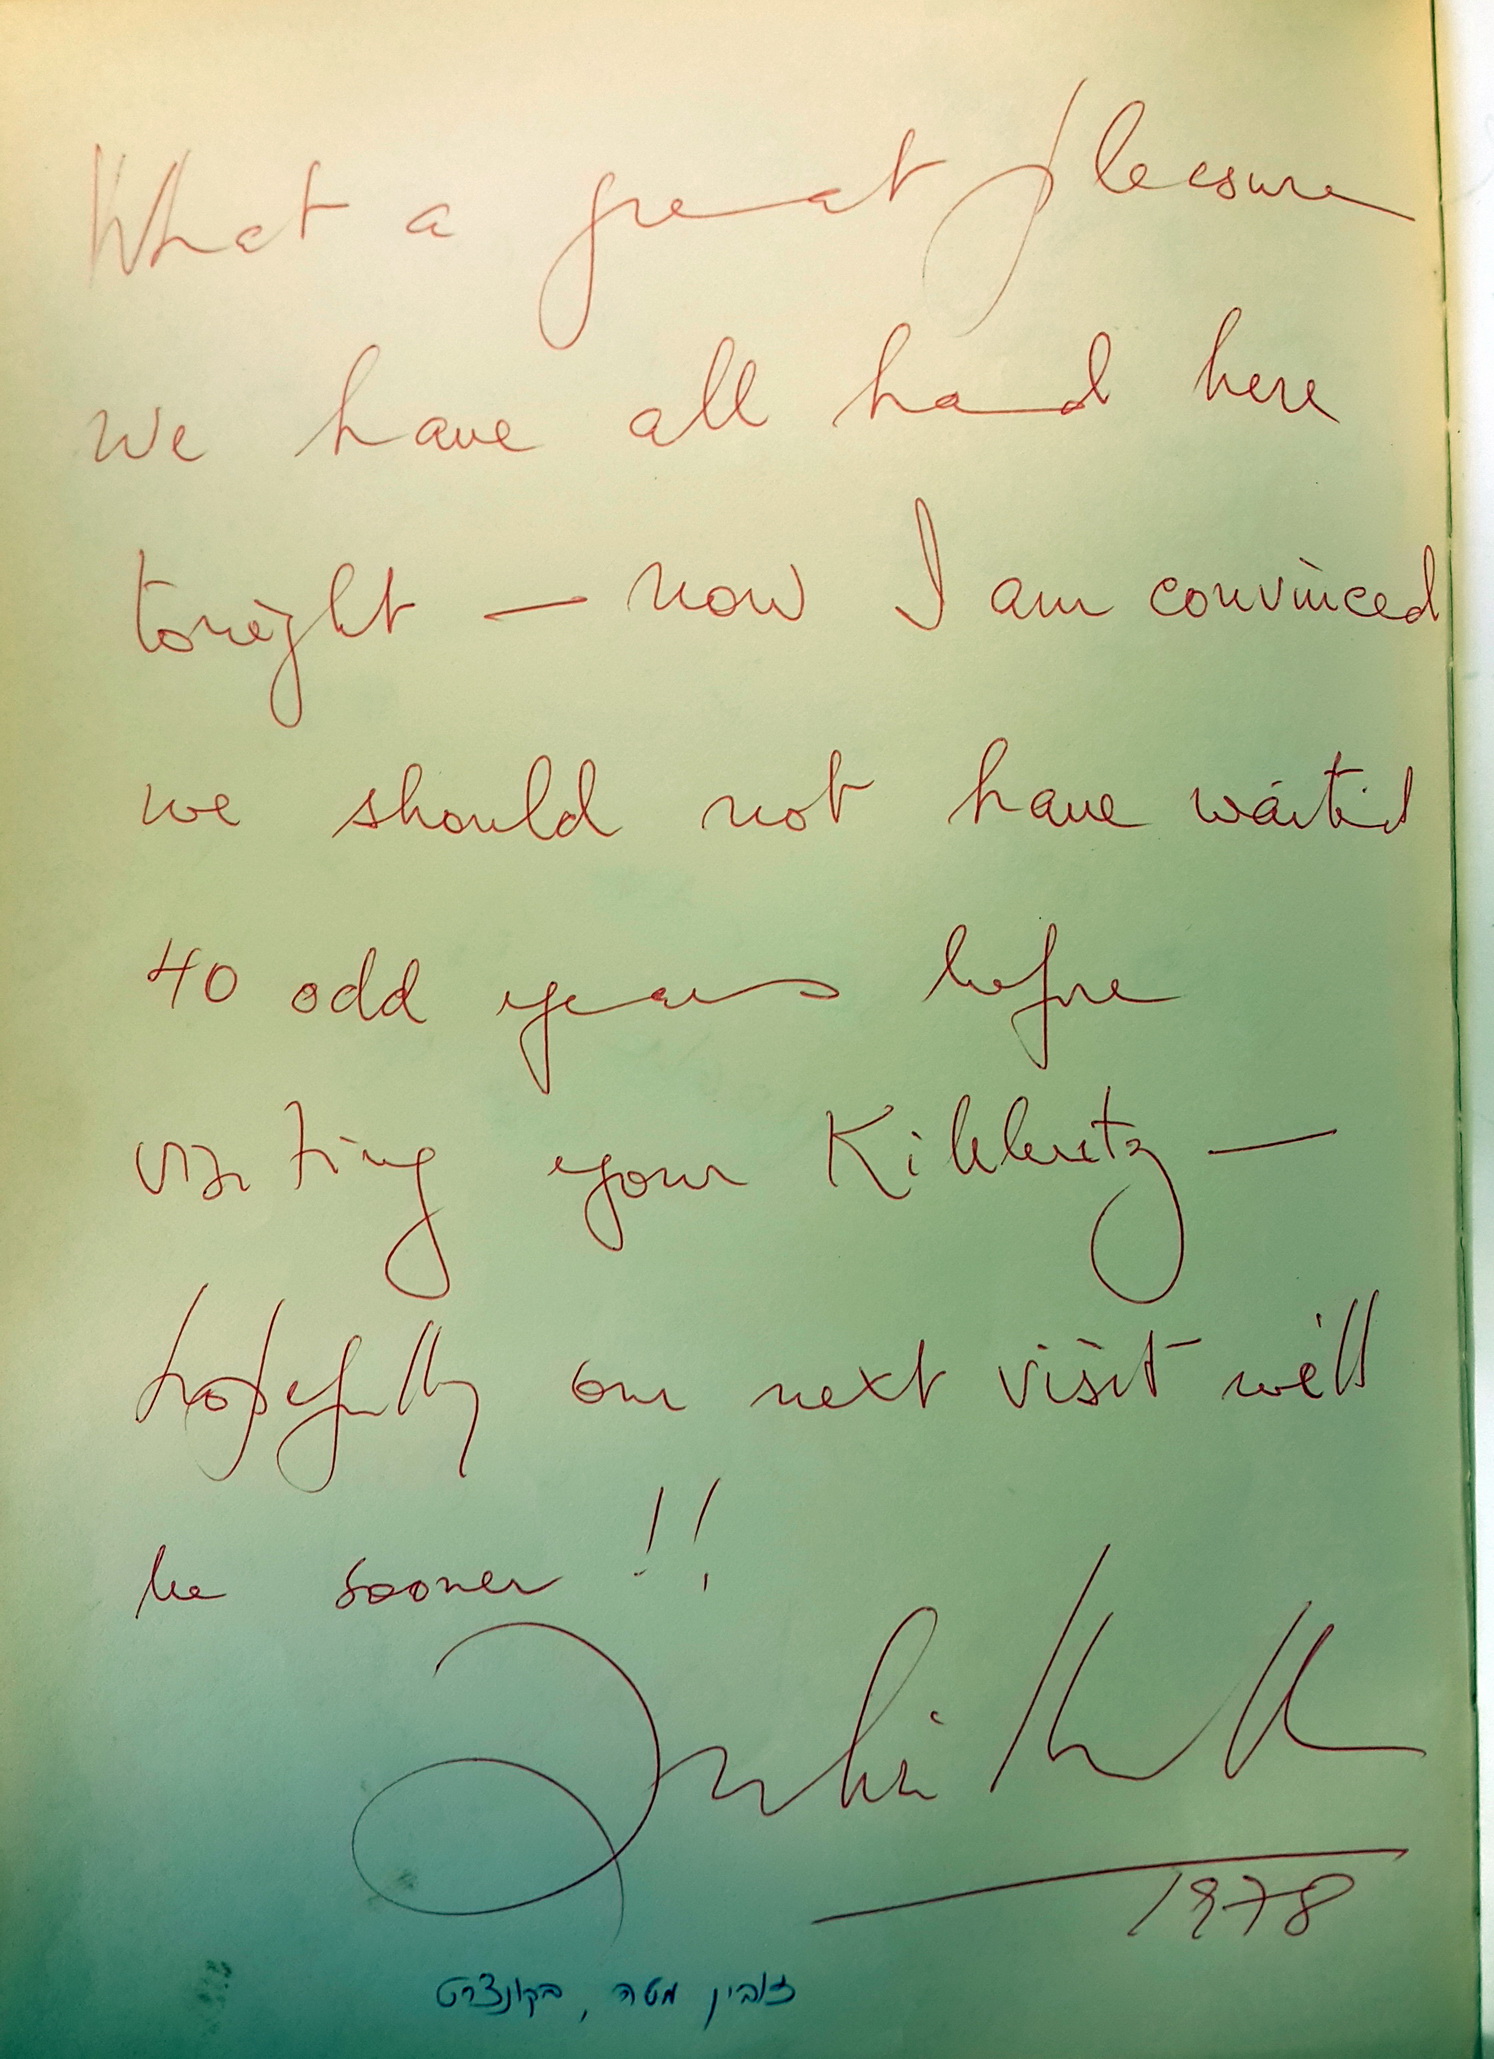 What a great pleasure
we have all had here
tonight — now I am convinced
we should not have waited
40 odd years before
visiting your Kibbutz —
hopefully our next visit will
be sooner !!
Zubin Mehta
1978
זובין מטה, בקונצרט